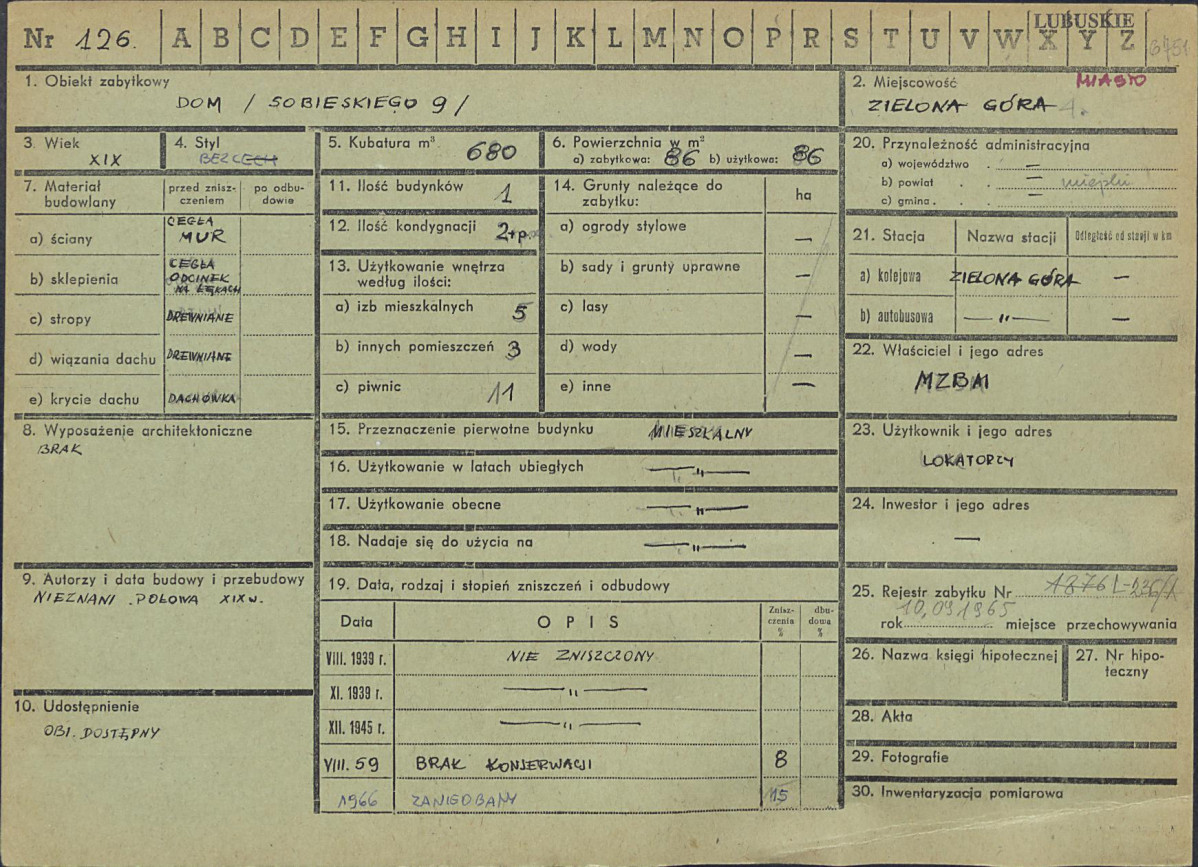 Nr 126. A B C D E F G H I J K L M N O P R S T U V W X Y Z
LUBUSKIE
6751
1. Obiekt zabytkowy
DOM / SOBIESKIEGO 9 /
2. Miejscowość
MIASTO
ZIELONA GÓRA
3. Wiek
XIX
4. Styl
BEZ CECH
5. Kubatura m³ 680
6. Powierzchnia w m²
a) zabytkowa: 86 b) użytkowa: 86
7. Materiał budowlany
przed zniszczeniem
po odbudowie
a) ściany
CEGŁA
MUR
b) sklepienia
CEGŁA
ODCINEK
NA ŁĘKACH
c) stropy DREWNIANE
d) wiązania dachu DREWNIANE
e) krycie dachu DACHÓWKA
8. Wyposażenie architektoniczne
BRAK
9. Autorzy i data budowy i przebudowy
NIEZNANI . POŁOWA XIX w.
10. Udostępnienie
OBI. DOSTĘPNY
11. Ilość budynków 1
12. Ilość kondygnacji 2+p.
13. Użytkowanie wnętrza
według ilości:
a) izb mieszkalnych 5
b) innych pomieszczeń 3
c) piwnic 11
14. Grunty należące do
zabytku:
ha
a) ogrody stylowe —
b) sady i grunty uprawne —
c) lasy —
d) wody —
e) inne —
15. Przeznaczenie pierwotne budynku MIESZKALNY
16. Użytkowanie w latach ubiegłych —"—
17. Użytkowanie obecne —"—
18. Nadaje się do użycia na —"—
19. Data, rodzaj i stopień zniszczeń i odbudowy
Data
OPIS
Zniszczenia %
dbudowa %
VIII. 1939 r. NIE ZNISZCZONY
XI. 1939 r. —"—
XII. 1945 r. —"—
VIII. 59 BRAK KONSERWACJI 8
1966 ZANIEDBANY 15
20. Przynależność administracyjna
a) województwo . —
b) powiat . . — miejski
c) gmina . . —
21. Stacja
Nazwa stacji
Odległość od stacji w km
a) kolejowa ZIELONA GÓRA —
b) autobusowa —"— —
22. Właściciel i jego adres
MZBM
23. Użytkownik i jego adres
LOKATORZY
24. Inwestor i jego adres
—
25. Rejestr zabytku Nr
10,09,1965
rok miejsce przechowywania
26. Nazwa księgi hipotecznej
27. Nr hipoteczny
28. Akta
29. Fotografie
30. Inwentaryzacja pomiarowa